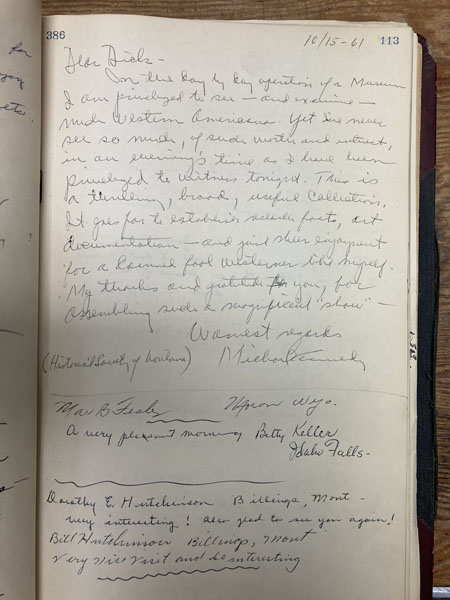 386
10/15-61
113
Dear Dick -
In the day by day operation of a Museum
I am privileged to see - and examine -
much Western Americana. Yet I've never
see so much, of such worth and interest,
in an evening's time as I have been
privileged to witness tonight. This is
a thrilling, broad, useful collection.
It goes far to establish facts, art
documentation - and just sheer enjoyment
for a damned fool Westerner like myself.
My thanks and gratitude to you, for
assembling such a magnificent "show" -
Warmest regards
(Historical Society of Montana) Michael Kennedy
Mae B. Wyo.
A very pleasant morning Betty Keller
Idaho Falls-
Dorothy E. Hutchinson Billings, Mont -
very interesting! also glad to see you again!
Bill Hutchinson Billings, Mont
Very nice visit and so interesting